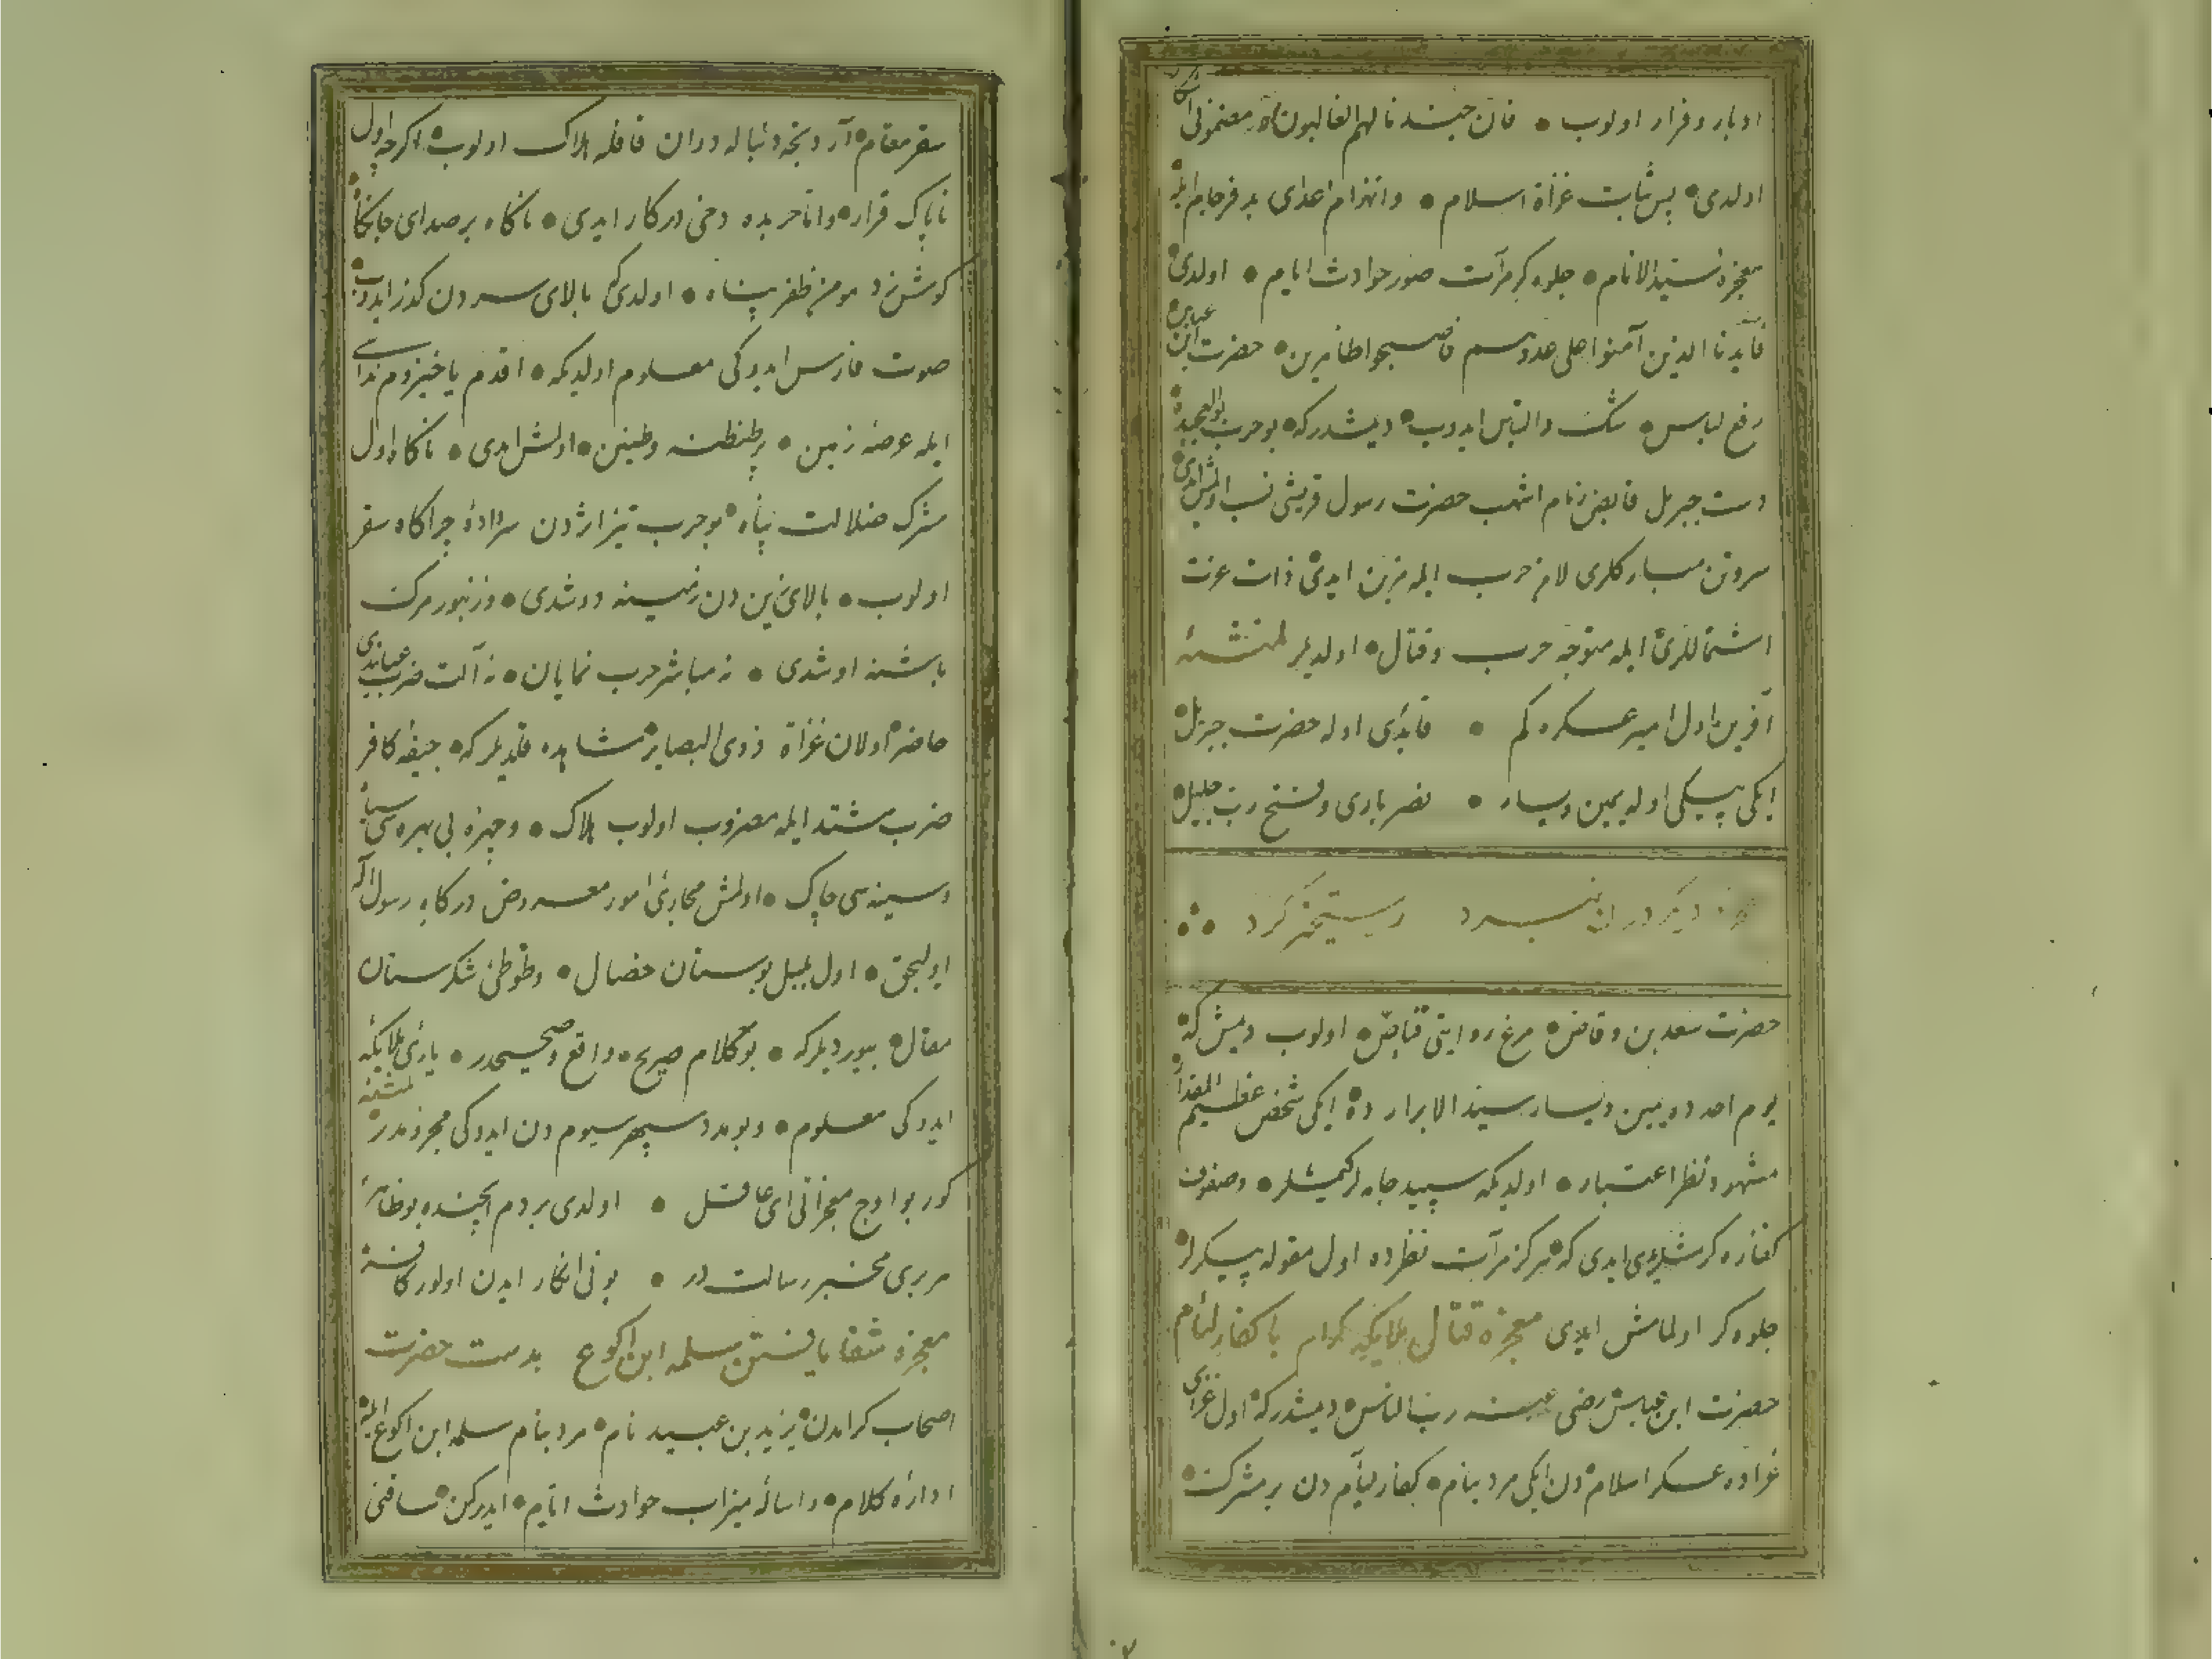 ادبار و فرار اولوب • فان جندنا لهم الغالبون مضمونی
اولدی • پس ثابت غزاة اسلام • وانهزام اعدای بد فرجام ایله
معجزهٔ سید الانام • جلوه کر مرآت صور حوادث ایام • اولدی
فأیدنا الذین آمنوا علی عدوهم فاصبحوا ظاهرین • حضرت ابن عباس
رفع لباس • شک والتباس ایدوب • دیمشدر که • بو حرب
دست جبریل قابض زمام اشهب حضرت رسول قریشی نسب اولمش ایدی
سر و تن مبارکلری لامهٔ حرب ایله مزین ایدی ذات عزت
اشتماللری ایله متوجه حرب و قتال • اولدیلر لمنشئه
آفرین اول امیر عسکره کم • قایدی اوله حضرت جبریل
ایکی پیکی اوله یمین و یسار • نصر باری و فتح رب جلیل
دیکر در ان نبرد رستخیز کرد
حضرت سعد بن وقاص • مرغ روایتی قناص • اولوب دیمش که
یوم احد ده یمین و یسار سید الابرار ده • ایکی شخص عظیم المقدار
مشهود نظر اعتبار • اولدیکه سپید جامه لر کیمشلر • وصفوف
کفاره کرمشلردی ایدی که هرکز مرآت نظرده اول مقوله پیکرلر
جلوه کر اولمامش ایدی معجزه قتال ملایکه کرام با کفار لئام
حضرت ابن عباس رضی عنه رب الناس • دیمشدر که اول غزای
غراده عسکر اسلام دن ایکی مرد بنام • کفار لیٔام دن بر مشرک
سقر مقام • آردنجه دنباله دوران قافله هلاک اولوب • اکرچه اول
ناپاک قراره وانلر بده دخی درکار ایدی • ناکاه بر صدای جانکاه
کوش زد مومن ظفر پناه • اولدی بالای سر دن کذر ایدوب
صوت فارس ایدوکی معلوم اولدیکه • اقدم یا حیزوم نداسی
ایله عرصهٔ زمین • پر طنطنه و طنین • اولمش ایدی • ناکاه اول
مشرک ضلالت پناه • بو حرب تیز اژدن سردادهٔ چراکاه سقر
اولوب • بالای زین دن زمینه دوشدی • و زنبور مرک
باشنه اوشدی • نه مباشر حرب نمایان • نه آلت ضرب عیان ایدی
حاضر اولان غزاة ذوی البصایر • مشاهده قلدیلر که • جیفه کافر
ضرب مشتد ایله مضروب اولوب هلاک • و چهرهٔ بی بهره سی سیاه
و سینه سی چاک • اولمش مجاری امور معروض درکاه رسول اله
اولیجق • اول بلبل بوستان خصال • و طوطیٔ شکرستان
مقال • بیوردیلر که • بو کلام صریح • واقع و صحیحدر • یاریٔ ملایکه
ایدوکی معلوم • و بو مدد سپهر سیوم دن ایدوکی مجزومدر لمنشئه
کور بو اوج معجزاتی ای عاقل • اولدی بر دم ایچنده بو ظاهر
هر بری مخبر رسالت در • بونی انکار ایدن اولور کافر
معجزه شفا یافتن سلمه ابن اکوع بدست حضرت
اصحاب کرامدن • یزید بن عبید نام • مرد بنام سلمه ابن اکوع ایله
ادارهٔ کلام • و اسالهٔ میزاب حوادث ایام • ایدرکن • ساقنی